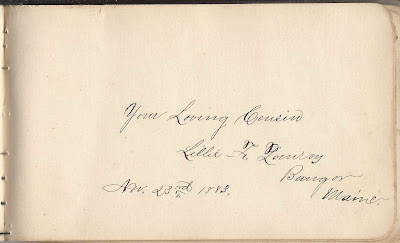 Your Loving Cousin
Lillie F.
Bangor
Maine.
Nov. 23rd 1883.